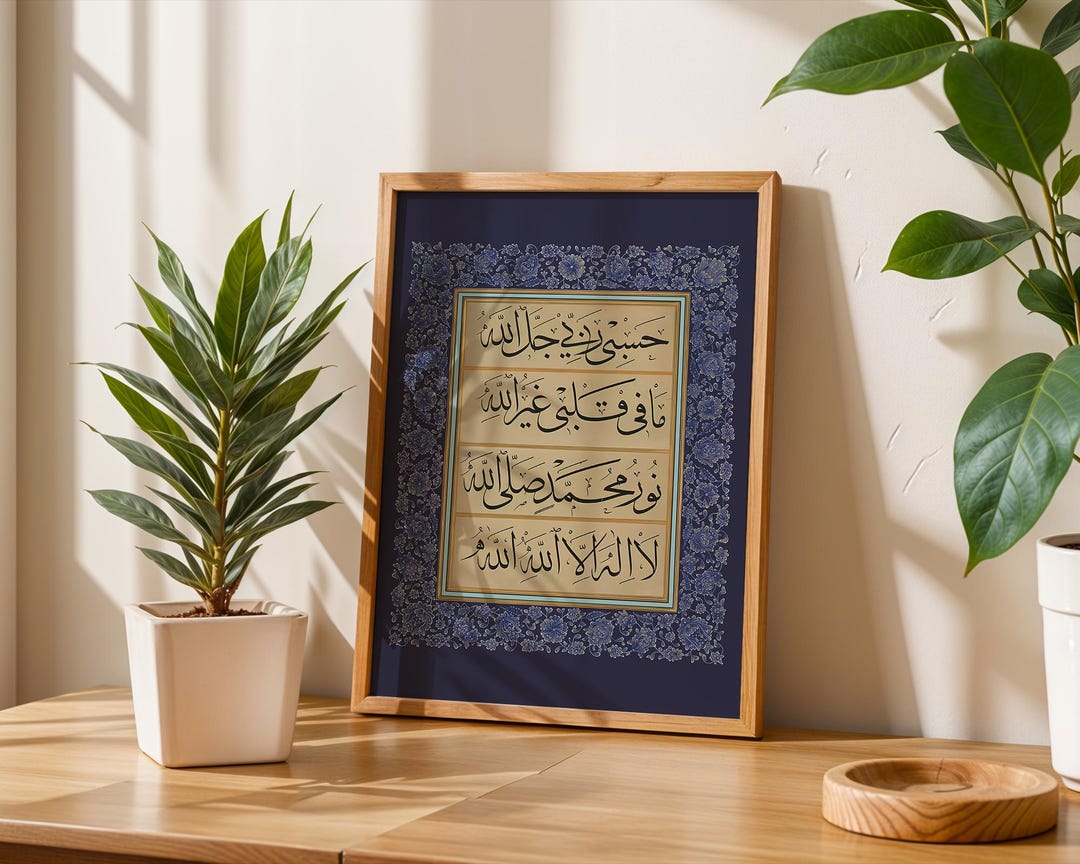 حسبي ربي جل الله
ما في قلبي غير الله
نور محمد صلى الله
لا اله الا الله الله